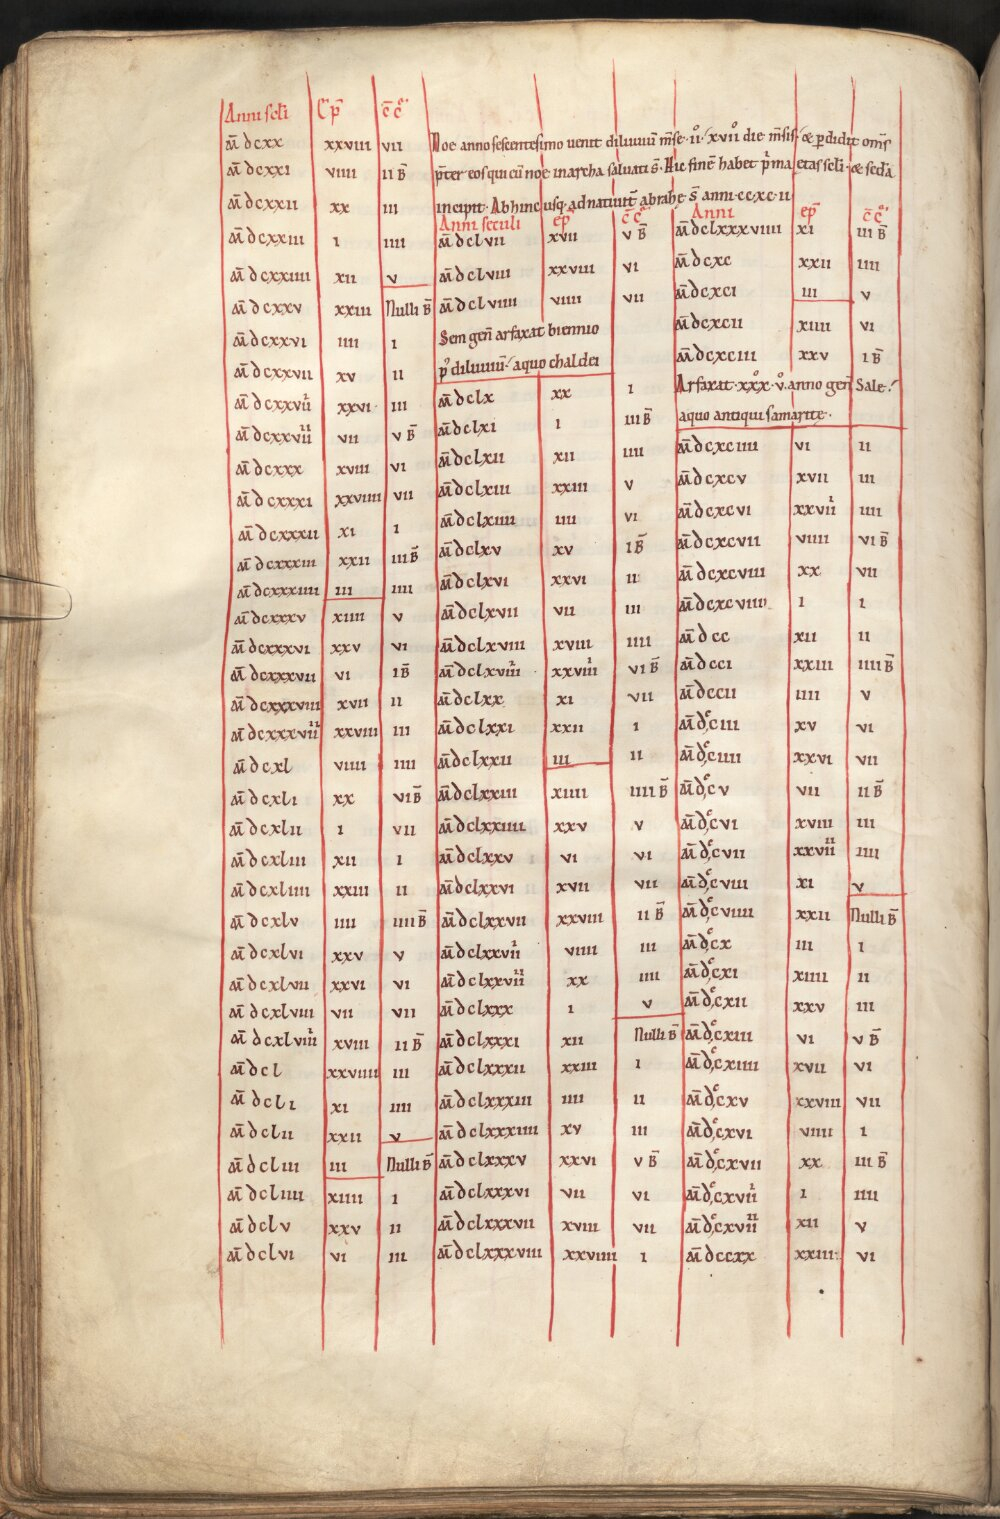 Anni scli Ep̄ c̄c̄
m̄ dcxx xxviii vii
m̄ dcxxi viiii ii B̄
m̄ dcxxii xx iii
m̄ dcxxiii i iiii
m̄ dcxxiiii xii v
m̄ dcxxv xxiii Nulli B̄
m̄ dcxxvi iiii i
m̄ dcxxvii xv ii
m̄ dcxxviii xxvi iii
m̄ dcxxviiii vii v B̄
m̄ dcxxx xviii vi
m̄ dcxxxi xxviiii vii
m̄ dcxxxii xi i
m̄ dcxxxiii xxii iii B̄
m̄ dcxxxiiii iii iiii
m̄ dcxxxv xiiii v
m̄ dcxxxvi xxv vi
m̄ dcxxxvii vi i B̄
m̄ dcxxxviii xvii ii
m̄ dcxxxviiii xxviii iii
m̄ dcxl viiii iiii
m̄ dcxli xx vi B̄
m̄ dcxlii i vii
m̄ dcxliii xii i
m̄ dcxliiii xxiii ii
m̄ dcxlv iiii iiii B̄
m̄ dcxlvi xxv v
m̄ dcxlvii xxvi vi
m̄ dcxlviii vii vii
m̄ dcxlviiii xviii ii B̄
m̄ dcl xxviiii iii
m̄ dcli xi iiii
m̄ dclii xxii v
m̄ dcliii iii Nulli B̄
m̄ dcliiii xiiii i
m̄ dclv xxv ii
m̄ dclvi vi iii
Noe anno sescentesimo uenit diluuiū m̄se iiº xviiº die m̄sis & ꝑdidit om̄s
p̄ter eos qui cū noe in archa saluati s̄. Hic finē habet p̍ma etas scli & scđa
incipit. Abhinc usq; ad natiuit̄ abrahe s̄ anni cc xc ii
Anni seculi ep̄ c̄c̄
m̄ dclvii xvii v B̄
m̄ dclviii xxviii vi
m̄ dclviiii viiii vii
Sem gen̄ arfaxat biennio
p̍ diluuiū a quo chaldei
m̄ dclx xx i
m̄ dclxi i iii B̄
m̄ dclxii xii iiii
m̄ dclxiii xxiii v
m̄ dclxiiii iiii vi
m̄ dclxv xv i B̄
m̄ dclxvi xxvi ii
m̄ dclxvii vii iii
m̄ dclxviii xviii iiii
m̄ dclxviiii xxviiii vi B̄
m̄ dclxx xi vii
m̄ dclxxi xxii i
m̄ dclxxii iii ii
m̄ dclxxiii xiiii iiii B̄
m̄ dclxxiiii xxv v
m̄ dclxxv vi vi
m̄ dclxxvi xvii vii
m̄ dclxxvii xxviii ii B̄
m̄ dclxxviii viiii iii
m̄ dclxxviiii xx iiii
m̄ dclxxx i v
m̄ dclxxxi xii Nulli B̄
m̄ dclxxxii xxiii i
m̄ dclxxxiii iiii ii
m̄ dclxxxiiii xv iii
m̄ dclxxxv xxvi v B̄
m̄ dclxxxvi vii vi
m̄ dclxxxvii xviii vii
m̄ dclxxxviii xxviiii i
Anni ep̄ c̄c̄
m̄ dclxxxviiii xi iii B̄
m̄ dcxc xxii iiii
m̄ dcxci iii v
m̄ dcxcii xiiii vi
m̄ dcxciii xxv i B̄
Arfaxat xxxº vº anno gen̄ Sale
a quo antiqui samarite
m̄ dcxciiii vi ii
m̄ dcxcv xvii iii
m̄ dcxcvi xxviii iiii
m̄ dcxcvii viiii vi B̄
m̄ dcxcviii xx vii
m̄ dcxcviiii i i
m̄ dcc xii ii
m̄ dcci xxiii iiii B̄
m̄ dccii iiii v
m̄ dcciii xv vi
m̄ dcciiii xxvi vii
m̄ dccv vii ii B̄
m̄ dccvi xviii iii
m̄ dccvii xxviiii iiii
m̄ dccviii xi v
m̄ dccviiii xxii Nulli B̄
m̄ dccx iii i
m̄ dccxi xiiii ii
m̄ dccxii xxv iii
m̄ dccxiii vi v B̄
m̄ dccxiiii xvii vi
m̄ dccxv xxviii vii
m̄ dccxvi viiii i
m̄ dccxvii xx iii B̄
m̄ dccxviii i iiii
m̄ dccxviiii xii v
m̄ dccxx xxiii vi